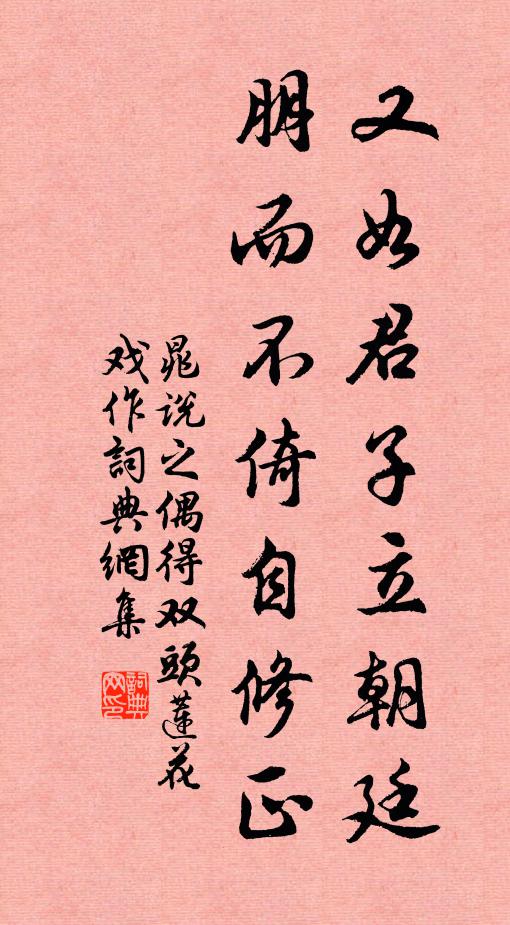 又如君子立朝廷
朋而不倚自修正
晁说之偶得双頭蓮花
戏作詞典網集
詞典网印